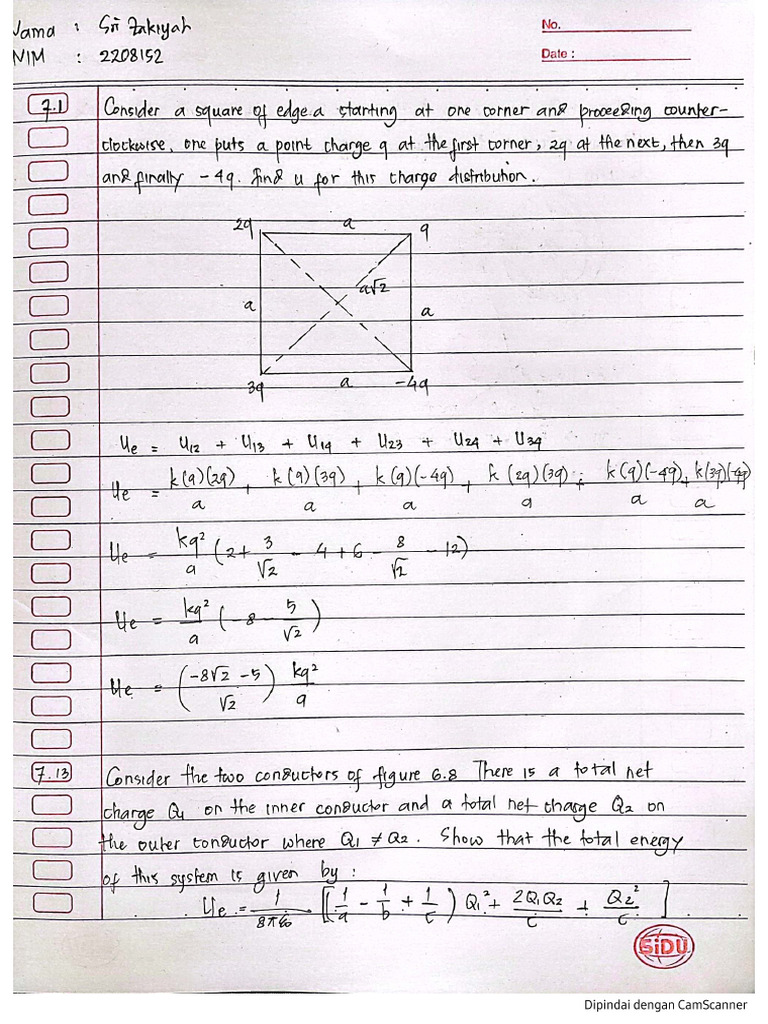 Nama : Sri Zakiyah
No.
NIM : 2208152
Date :
7.1 Consider a square of edge a starting at one corner and proceeding counter-
clockwise, one puts a point charge q at the first corner, 2q at the next, then 3q
and finally -4q. find u for this charge distribution.
2q a q
a√2
a a
3q a -4q
Ue = U12 + U13 + U14 + U23 + U24 + U34
Ue = k(q)(2q)/a + k(q)(3q)/a + k(q)(-4q)/a + k(2q)(3q)/a + k(q)(-4q)/a + k(3q)(-4q)/a
Ue = kq²/a (2 + 3/√2 - 4 + 6 - 8/√2 - 12)
Ue = kq²/a (-8 - 5/√2)
Ue = ((-8√2 - 5)/√2) kq²/a
7.13 Consider the two conductors of figure 6.8 There is a total net
charge Q1 on the inner conductor and a total net charge Q2 on
the outer conductor where Q1 ≠ Q2. Show that the total energy
of this system is given by :
Ue = 1/8πε0 [(1/a - 1/b + 1/c) Q1² + 2Q1Q2/c + Q2²/c]
SiDU
Dipindai dengan CamScanner